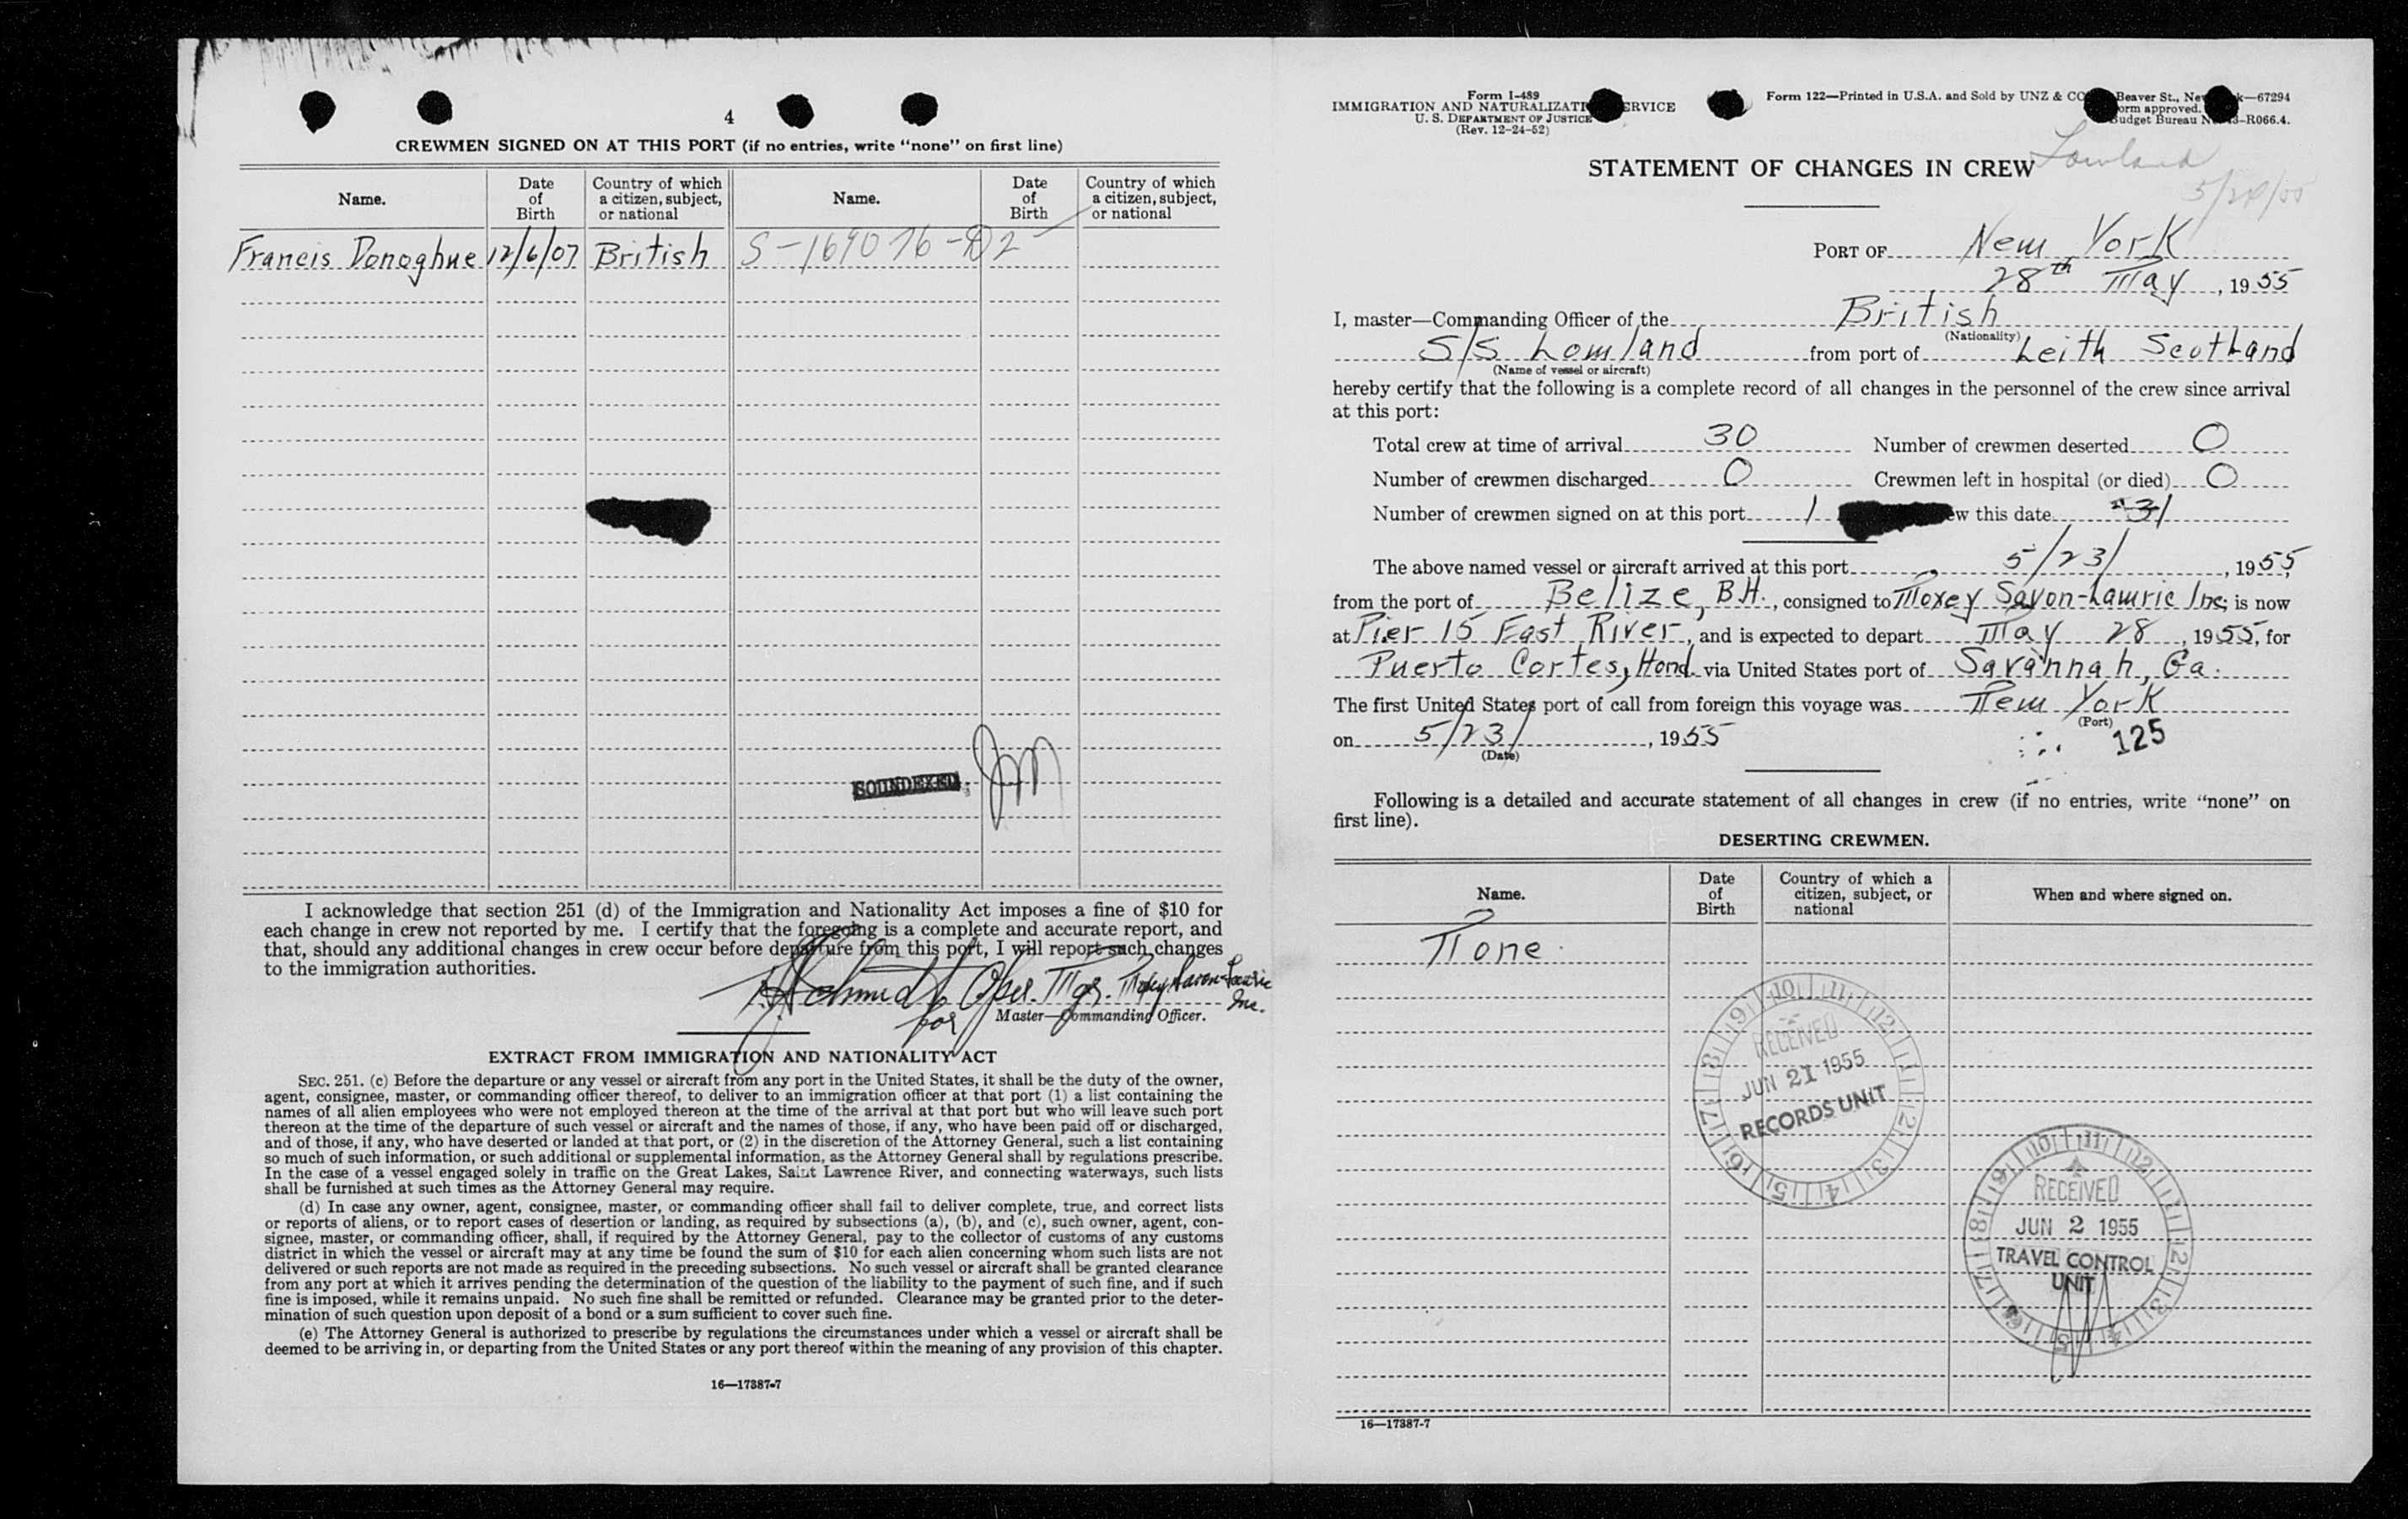 4
CREWMEN SIGNED ON AT THIS PORT (if no entries, write "none" on first line)
Name. Date of Birth Country of which a citizen, subject, or national Name. Date of Birth Country of which a citizen, subject, or national
Francis Donoghue 12/6/07 British S-169076-D2
SOUNDEXED
JM
I acknowledge that section 251 (d) of the Immigration and Nationality Act imposes a fine of $10 for
each change in crew not reported by me. I certify that the foregoing is a complete and accurate report, and
that, should any additional changes in crew occur before departure from this port, I will report such changes
to the immigration authorities.
Schmidt Oper. Mgr. Moxey Savon-Lawrie
Inc.
for Master—Commanding Officer.
EXTRACT FROM IMMIGRATION AND NATIONALITY ACT
SEC. 251. (c) Before the departure or any vessel or aircraft from any port in the United States, it shall be the duty of the owner,
agent, consignee, master, or commanding officer thereof, to deliver to an immigration officer at that port (1) a list containing the
names of all alien employees who were not employed thereon at the time of the arrival at that port but who will leave such port
thereon at the time of the departure of such vessel or aircraft and the names of those, if any, who have been paid off or discharged,
and of those, if any, who have deserted or landed at that port, or (2) in the discretion of the Attorney General, such a list containing
so much of such information, or such additional or supplemental information, as the Attorney General shall by regulations prescribe.
In the case of a vessel engaged solely in traffic on the Great Lakes, Saint Lawrence River, and connecting waterways, such lists
shall be furnished at such times as the Attorney General may require.
(d) In case any owner, agent, consignee, master, or commanding officer shall fail to deliver complete, true, and correct lists
or reports of aliens, or to report cases of desertion or landing, as required by subsections (a), (b), and (c), such owner, agent, con-
signee, master, or commanding officer, shall, if required by the Attorney General, pay to the collector of customs of any customs
district in which the vessel or aircraft may at any time be found the sum of $10 for each alien concerning whom such lists are not
delivered or such reports are not made as required in the preceding subsections. No such vessel or aircraft shall be granted clearance
from any port at which it arrives pending the determination of the question of the liability to the payment of such fine, and if such
fine is imposed, while it remains unpaid. No such fine shall be remitted or refunded. Clearance may be granted prior to the deter-
mination of such question upon deposit of a bond or a sum sufficient to cover such fine.
(e) The Attorney General is authorized to prescribe by regulations the circumstances under which a vessel or aircraft shall be
deemed to be arriving in, or departing from the United States or any port thereof within the meaning of any provision of this chapter.
16—17387-7
Form I-489
IMMIGRATION AND NATURALIZATI ERVICE
U. S. DEPARTMENT OF JUSTICE
(Rev. 12-24-52)
Form 122—Printed in U.S.A. and Sold by UNZ & CO Beaver St., Ne k—67294
orm approved.
udget Bureau N 3-R066.4.
Lowland
STATEMENT OF CHANGES IN CREW
PORT OF New York
28th May, 1955
I, master—Commanding Officer of the British
(Nationality)
S/S Lowland from port of Leith Scotland
(Name of vessel or aircraft)
hereby certify that the following is a complete record of all changes in the personnel of the crew since arrival
at this port:
Total crew at time of arrival 30 Number of crewmen deserted 0
Number of crewmen discharged 0 Crewmen left in hospital (or died) 0
Number of crewmen signed on at this port 1 ew this date 31
The above named vessel or aircraft arrived at this port 5/23/, 1955,
from the port of Belize, B.H., consigned to Moxey Savon-Lawrie Inc; is now
at Pier 15 East River, and is expected to depart May 28, 1955, for
Puerto Cortes, Hond. via United States port of Savannah, Ga.
The first United States port of call from foreign this voyage was New York
(Port)
on 5/23/, 1955
(Date)
125
Following is a detailed and accurate statement of all changes in crew (if no entries, write "none" on
first line).
DESERTING CREWMEN.
Name. Date of Birth Country of which a citizen, subject, or national When and where signed on.
None.
RECEIVED
JUN 21 1955
RECORDS UNIT
RECEIVED
JUN 2 1955
TRAVEL CONTROL
UNIT
16—17387-7